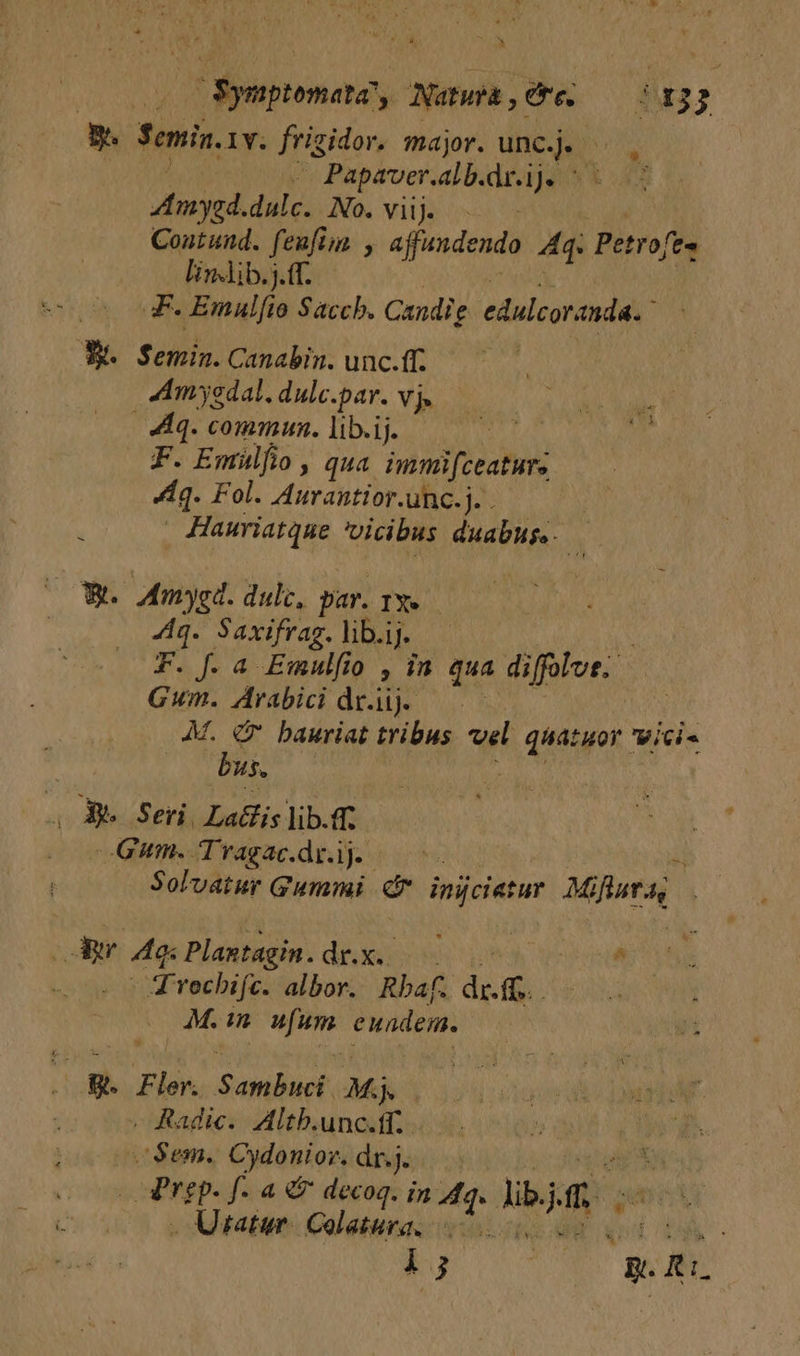 Symptomata, Natura, &c. 133
℞. Semin. iv. frigidor. major. unc.j.
Papaver.alb.dr.ij.
Amygd.dulc. No. viij.
Contund. ſenſim, affundendo Aq. Petroſe-
lin.lib.j.ſſ.
F. Emulſio Sacch. Candiæ edulcoranda.
℞. Semin. Canabin. unc.ſſ.
Amygdal. dulc.par. vj.
Aq. commun. lib.ij.
F. Emulſio, qua immiſceatur
Aq. Fol. Aurantior.unc.j.
Hauriatque vicibus duabus.
℞. Amygd. dulc. par. ix.
Aq. Saxifrag. lib.ij.
F. ſ. a Emulſio, in qua diſſolve.
Gum. Arabici dr.iij.
M. & hauriat tribus vel quatuor vici-
bus.
℞. Seri Lactis lib.ſſ.
Gum. Tragac.dr.ij.
Solvatur Gummi & injiciatur Miſtura,
℞ Aq. Plantagin. dr.x.
Trochiſc. albor. Rhaſ. dr.ſſ.
M.in uſum eundem.
℞. Flor. Sambuci M.j.
Radic. Alth.unc.ſſ.
Sem. Cydonior. dr.j.
Prep. ſ. a & decoq. in Aq. lib.j.ſſ.
Utatur Colatura.
k 3 ℞. Ri-